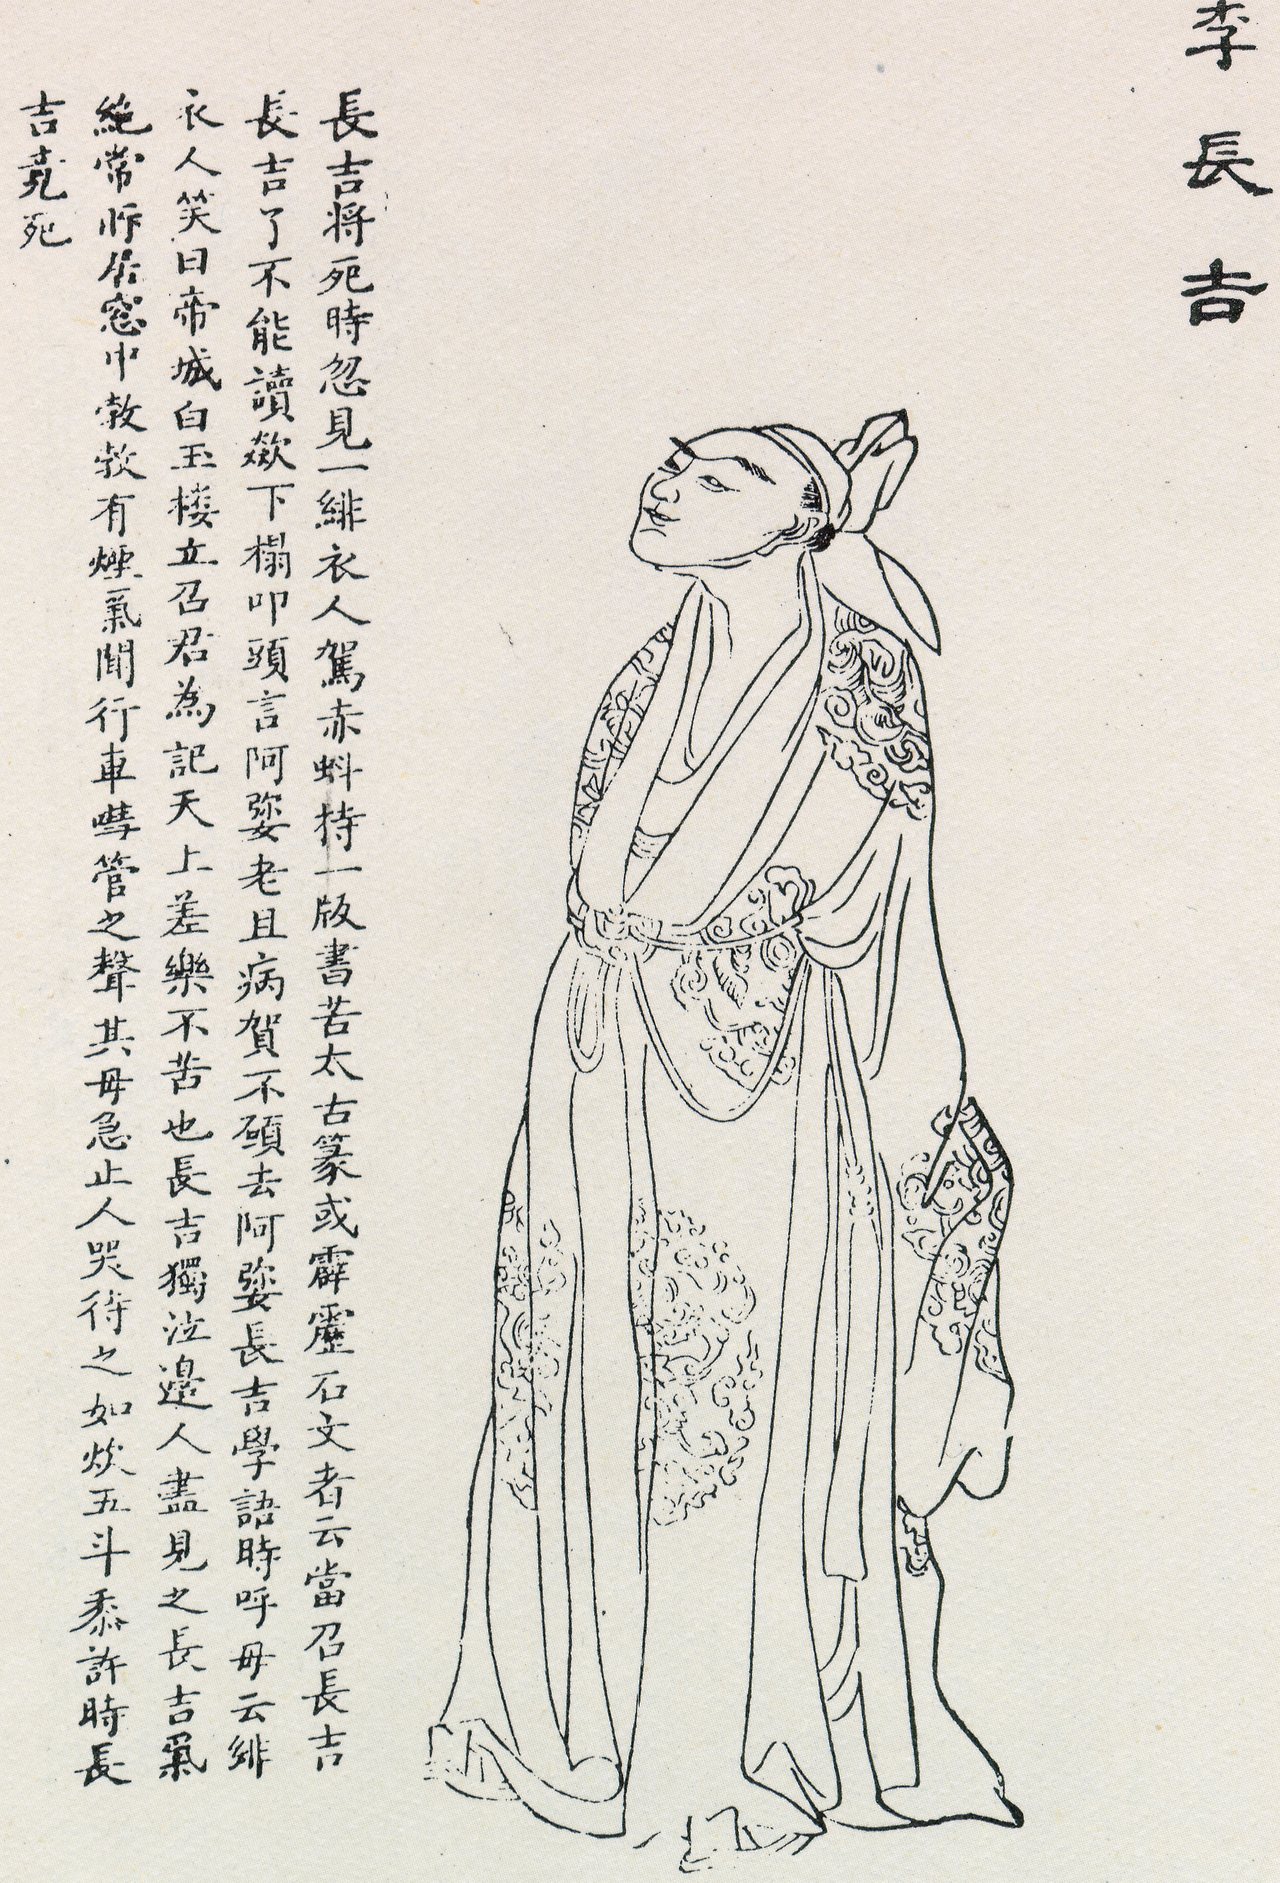 李長吉
長吉将死時忽見一緋衣人駕赤蚪持一版書苦太古篆或霹靂石文者云當召長吉
長吉了不能讀歘下榻叩頭言阿㜷老且病賀不願去阿㜷長吉學語時呼母云緋
衣人笑曰帝城白玉樓立召君為記天上差樂不苦也長吉獨泣邊人盡見之長吉氣
絶常所居窓中勃勃有煙氣聞行車嘒管之聲其母急止人哭待之如炊五斗黍許時長
吉竟死